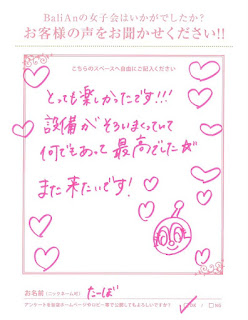 BaliAnの女子会はいかがでしたか?
お客様の声をお聞かせください!!
こちらのスペースへ自由にご記入ください
とっても楽しかったです!!!
設備がそろいまくっていて
何でもあって最高でした☆
また来たいです!
お名前(ニックネーム可) たーぼ
アンケートを当店ホームページやロビー等で公開してもよろしいですか? ✓OK / □NG